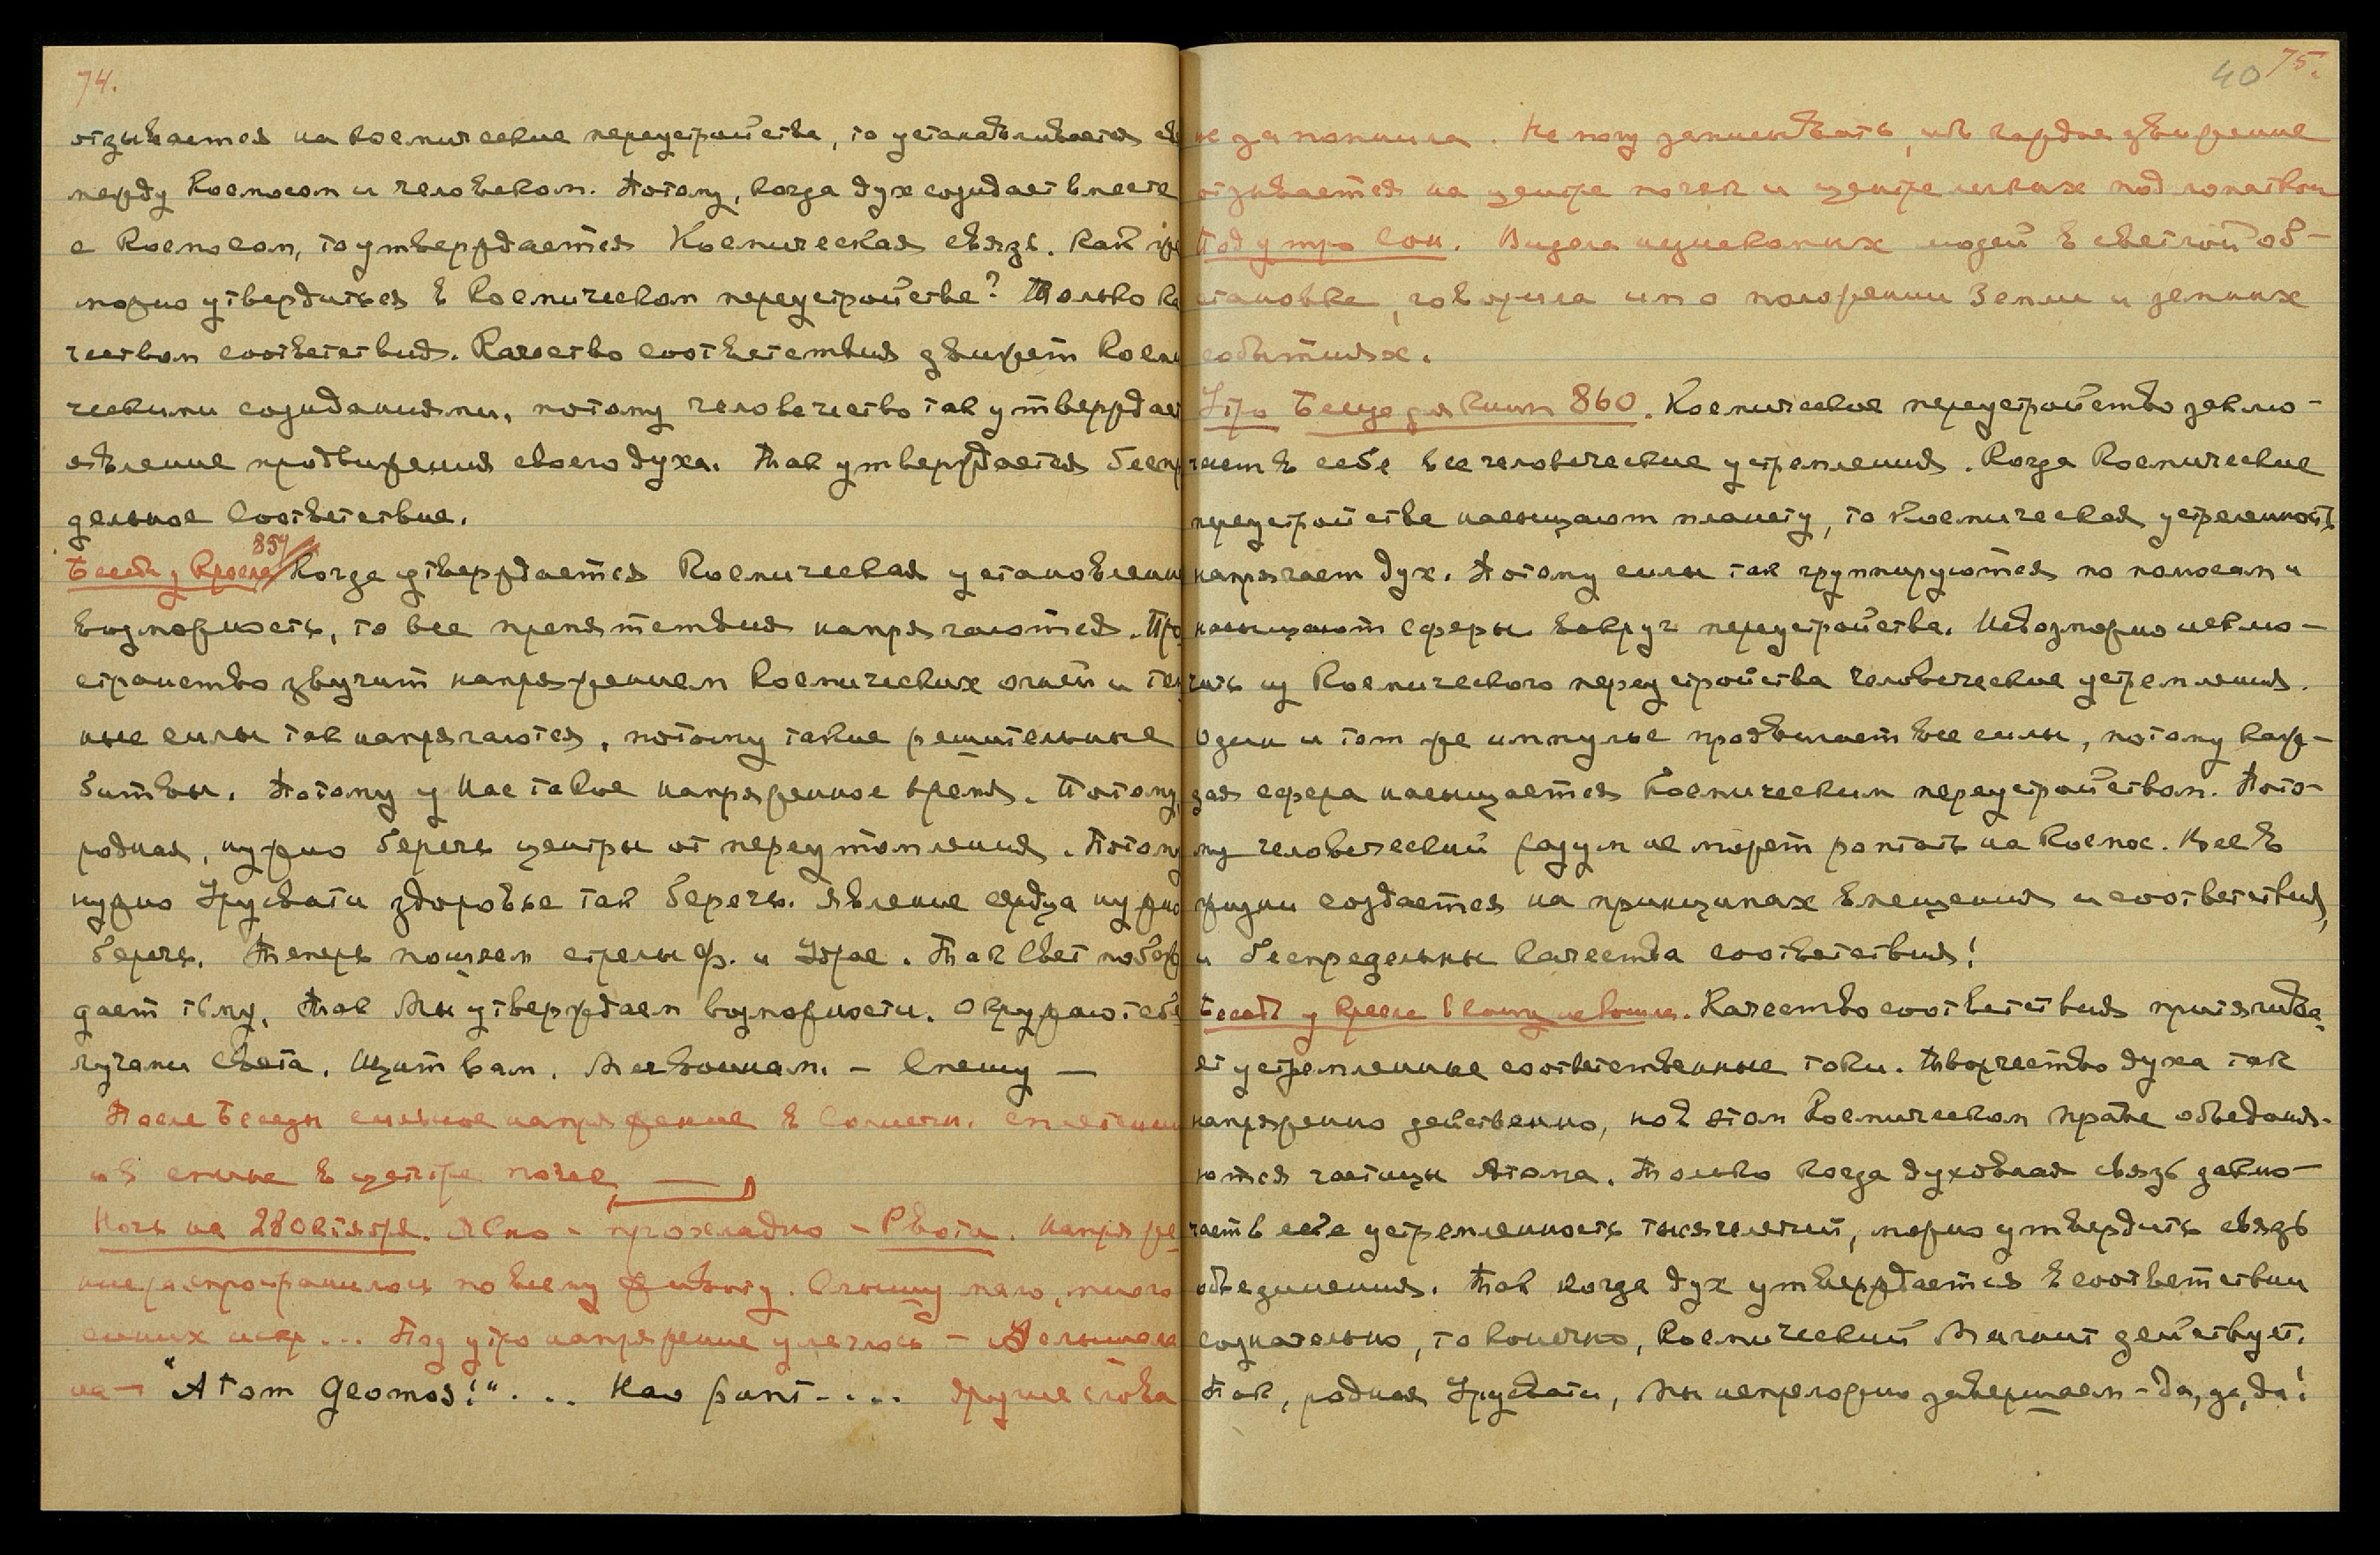 74.
отзывается на космические переустройства, то устанавливается
между Космосом и человеком. Потому, когда дух созидает вместе
с Космосом, то утверждается Космическая связь. Как же
можно утвердиться в Космическом переустройстве? Только ка
чеством соответствия. Качество соответствия движет Косми
ческими созиданиями, потому человечество так утверждает
явление продвижения своего духа. Так утверждается беспре
дельное Соответствие.
859
Беседа у Кресла Когда утверждается Космическая установленн
возможность, то все препятствия напрягаются. Про
странство звучит напряжением Космических огней и тем
ные силы так напрягаются, потому такие решительные
битвы. Потому у Нас такое напряженное время. Потому,
родная, нужно беречь центры от переутомления. Потому
нужно Урусвати здоровье так беречь. Явление сердца нужно
беречь. Теперь пошлем стрелы Ф. и Удрае. Так Свет побеж
дает тьму. Так Мы утверждаем возможности. Окружаю тебя
лучами Света. Щит вам. Ме воинам. – Спешу –
После Беседы сильное напряжение в Солнечн. сплетении
и в спине в центре почек
Ночь на 28 Октября. Ясно – прохладно – Рвота. Напряже
ние распространилось по всему животу. Слышу мало, много
синих искр... Под утро напряжение улеглось – Услышала
на – "Atom Geomos!"... Нао punt.... другие слова
40 75.
не запомнила. Не могу записывать, ибо каждое движение
отзывается на центре почек и центре легких под лопаткой
Под утро Сон. Видела нескольких людей в светлой об–
становке, говорила им о положении Земли и земных
событиях.
Утро Беседа для книги 860. Космическое переустройство заклю–
чает в себе все человеческие устремления. Когда Космические
переустройства насыщают планету, то Космическая устремленность
напрягает дух. Потому силы так группируются по полюсам и
насыщают сферы вокруг переустройства. Невозможно исклю–
чить из Космического переустройства человеческие устремления.
Один и тот же импульс продвигает все силы, потому каж–
дая сфера насыщается Космическим переустройством. Пото–
му человеческий разум не может роптать на Космос. Все в
жизни создается на принципах вмещения и соответствия,
и беспредельны качества соответствия!
Беседа у Кресла. Качество соответствия притягива–
ет устремленные соответственные токи. Творчество духа так
напряженно действенно, под этом Космическом праве объединя–
ются частицы Атома. Только когда духовная связь заклю–
чает в себе устремленность тысячелетий, можно утвердить связь
объединения. Так когда дух утверждается в соответствии
сознательно, то конечно, Космический Магнит действует.
Так, родная Урусвати, Мы непреложно завершаем – да, да, да!